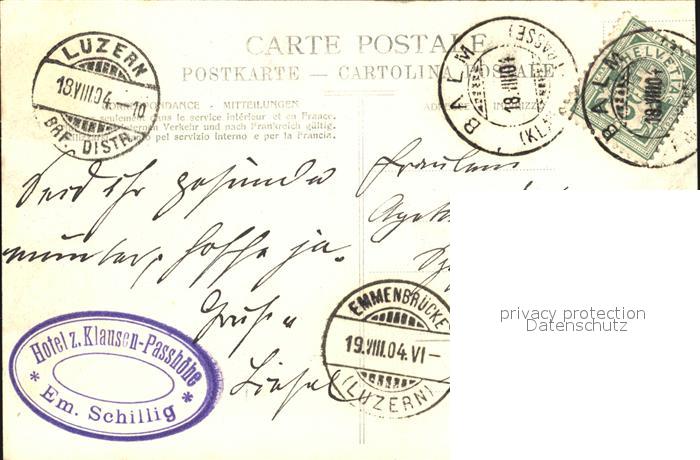 CARTE POSTALE
POSTKARTE — CARTOLINA POSTALE
CORRESPONDANCE - MITTEILUNGEN
seulement dans le service intérieur et en France.
internen Verkehr und nach Frankreich gültig.
pel servizio interno e per la Francia.
LUZERN
18.VIII.04. - 10
BRF. DISTR.
BALM
18.VIII.04
(KLAUSENPASSE)
HELVETIA
5
BALM
18.VIII.04
Fräulein
Seid ihr gesund u
munter, hoffe ja.
Grüsse
Liesel
EMMENBRÜCKE
19.VIII.04.VI-
(LUZERN)
Hotel z. Klausen-Passhöhe
* Em. Schillig *
privacy protection
Datenschutz